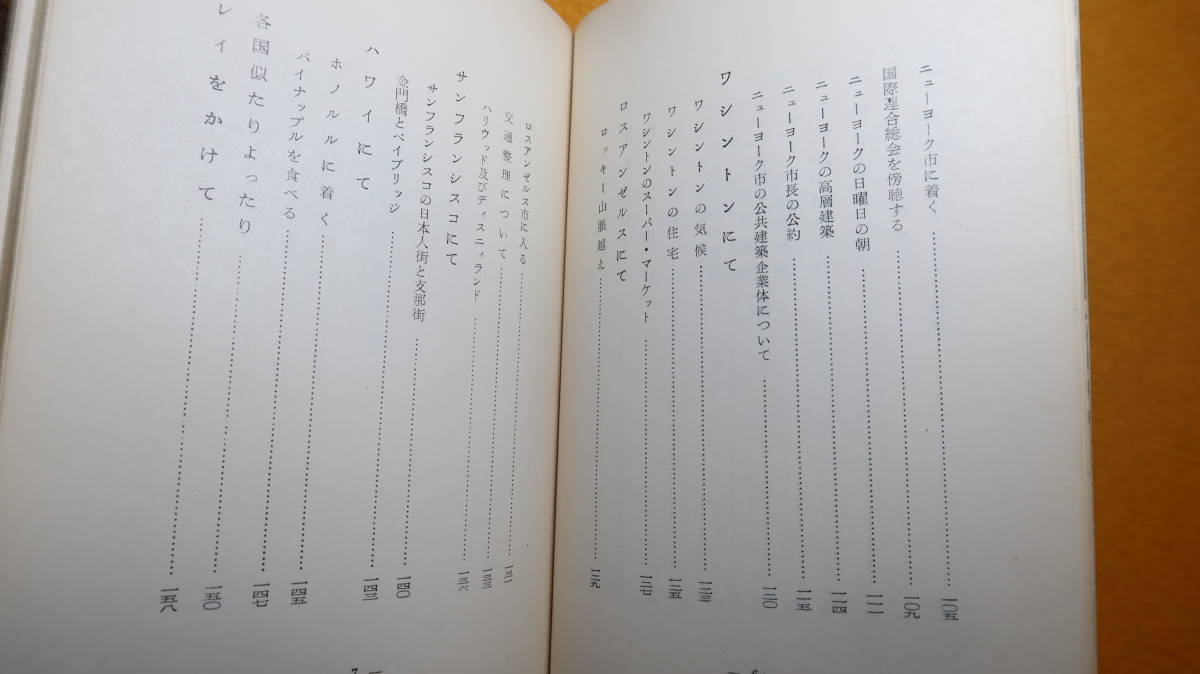 ニューヨーク市に着く……一〇五
国際連合総会を傍聴する……一〇九
ニューヨークの日曜日の朝……一一一
ニューヨークの高層建築……一一四
ニューヨーク市長の公約……一一五
ニューヨーク市の公共建築企業体について……一二〇
ワシントンにて
ワシントンの気候……一二三
ワシントンの住宅……一二五
ワシントンのスーパー・マーケット……一二七
ロスアンゼルスにて
ロッキー山脈越え……一二九
ロスアンゼルス市に入る……一三一
交通整理について……一三三
ハリウッド及びディスニィランド……一三六
サンフランシスコにて
サンフランシスコの日本人街と支那街……一四〇
金門橋とベイブリッジ……一四三
ハワイにて
ホノルルに着く……一四五
パイナップルを食べる……一四七
各国似たりよったり……一五〇
レイをかけて……一五八